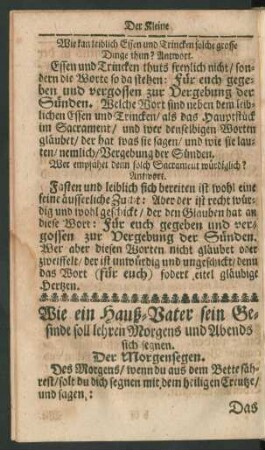 Der Kleine
Wie kan leiblich Essen und Trincken solche grosse
Dinge thun? Antwort.
Essen und Trincken thuts freylich nicht/ son-
dern die Worte so da stehen: Für euch gege-
ben und vergossen zur Vergebung der
Sünden. Welche Wort sind neben dem leib-
lichen Essen und Trincken/ als das Hauptstück
im Sacrament/ und wer denselbigen Worten
gläubet/ der hat was sie sagen/ und wie sie lau-
ten/ nemlich/ Vergebung der Sünden.
Wer empfähet denn solch Sacrament würdiglich?
Antwort.
Fasten und leiblich sich bereiten ist wohl eine
feine äusserliche Zucht: Aber der ist recht wür-
dig und wohl geschickt/ der den Glauben hat an
diese Wort: Für euch gegeben und ver-
gossen zur Vergebung der Sünden.
Wer aber diesen Worten nicht gläubet oder
zweiffelt/ der ist unwürdig und ungeschickt/ denn
das Wort (für euch) fodert eitel gläubige
Hertzen.
Wie ein Hauß-Vater sein Ge-
sinde soll lehren Morgens und Abends
sich segnen.
Der Morgensegen.
Des Morgens/ wenn du aus dem Bette fäh-
rest/ solt du dich segnen mit dem heiligen Creutze/
und sagen:
Das